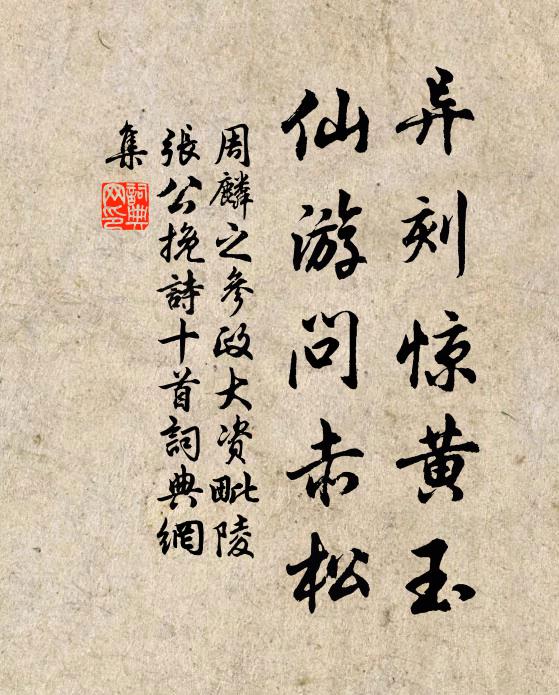 异刻惊黄玉
仙游问赤松
周麟之参政大资毗陵
張公挽詩十首詞典網
集
詞典
网印